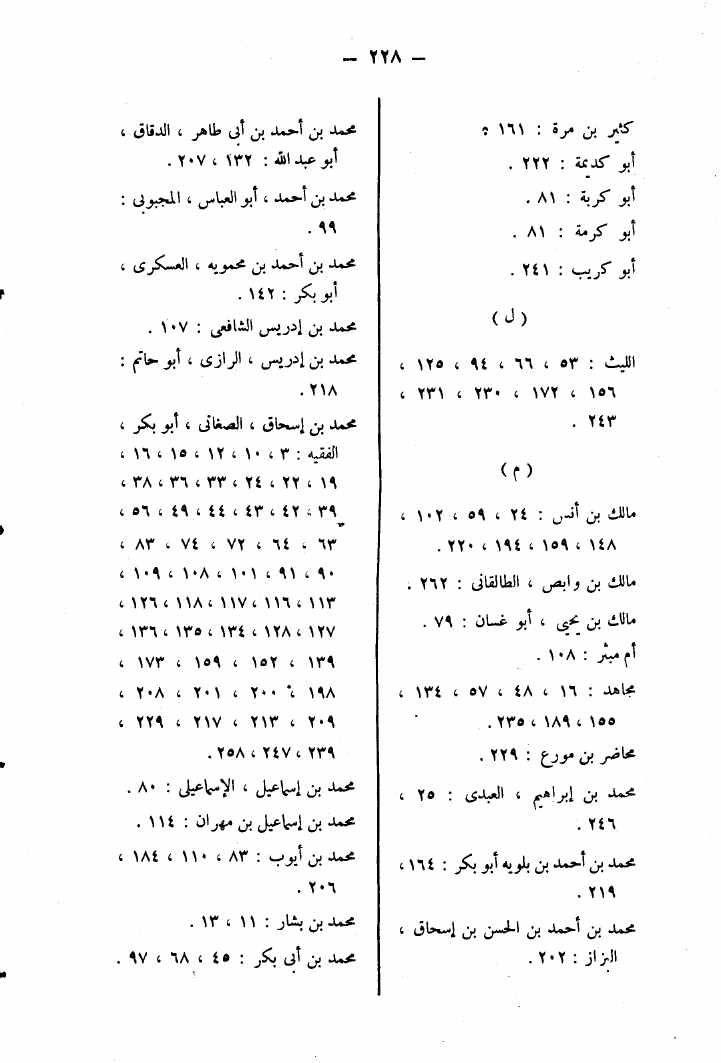 — ٢٢٨ —
كثير بن مرة : ١٦١ ؛
أبو كديمة : ٢٢٢ .
أبو كربة : ٨١ .
أبو كرمة : ٨١ .
أبو كريب : ٢٤١ .
( ل )
الليث : ٥٣ ، ٦٦ ، ٩٤ ، ١٢٥ ،
١٥٦ ، ١٧٢ ، ٢٣٠ ، ٢٣١ ،
٢٤٣ .
( م )
مالك بن أنس : ٢٤ ، ٥٩ ، ١٠٢ ،
١٤٨ ، ١٥٩ ، ١٩٤ ، ٢٢٠ .
مالك بن وابص ، الطالقانى : ٢٦٢ .
مالك بن يحيى ، أبو غسان : ٧٩ .
أم مبشر : ١٠٨ .
مجاهد : ١٦ ، ٤٨ ، ٥٧ ، ١٣٤ ،
١٥٥ ، ١٨٩ ، ٢٣٥ .
محاضر بن مورع : ٢٢٩ .
محمد بن إبراهيم ، العبدى : ٢٥ ،
٢٤٦ .
محمد بن أحمد بن بلويه أبو بكر : ١٦٤ ،
٢١٩ .
محمد بن أحمد بن الحسن بن إسحاق ،
البزاز : ٢٠٢ .
محمد بن أحمد بن أبى طاهر ، الدقاق ،
أبو عبد الله : ١٣٢ ، ٢٠٧ .
محمد بن أحمد ، أبو العباس ، المجبوبى :
٩٩ .
محمد بن أحمد بن محمويه ، العسكرى ،
أبو بكر : ١٤٢ .
محمد بن إدريس الشافعى : ١٠٧ .
محمد بن إدريس ، الرازى ، أبو حاتم :
٢١٨ .
محمد بن إسحاق ، الصغانى ، أبو بكر ،
الفقيه : ٣ ، ١٠ ، ١٢ ، ١٥ ، ١٦ ،
١٩ ، ٢٢ ، ٢٤ ، ٣٣ ، ٣٦ ، ٣٨ ،
٣٩ ، ٤٢ ، ٤٣ ، ٤٤ ، ٤٩ ، ٥٦ ،
٦٣ ، ٦٤ ، ٧٢ ، ٧٤ ، ٨٣ ،
٩٠ ، ٩١ ، ١٠١ ، ١٠٨ ، ١٠٩ ،
١١٣ ، ١١٦ ، ١١٧ ، ١١٨ ، ١٢٦ ،
١٢٧ ، ١٢٨ ، ١٣٤ ، ١٣٥ ، ١٣٦ ،
١٣٩ ، ١٥٢ ، ١٥٩ ، ١٧٣ ،
١٩٨ ، ٢٠٠ ، ٢٠١ ، ٢٠٨ ،
٢٠٩ ، ٢١٣ ، ٢١٧ ، ٢٢٩ ،
٢٣٩ ، ٢٤٧ ، ٢٥٨ .
محمد بن إسماعيل ، الإسماعيلى : ٨٠ .
محمد بن إسماعيل بن مهران : ١١٤ .
محمد بن أيوب : ٨٣ ، ١١٠ ، ١٨٤ ،
٢٠٦ .
محمد بن بشار : ١١ ، ١٣ .
محمد بن أبى بكر : ٤٥ ، ٦٨ ، ٩٧ .